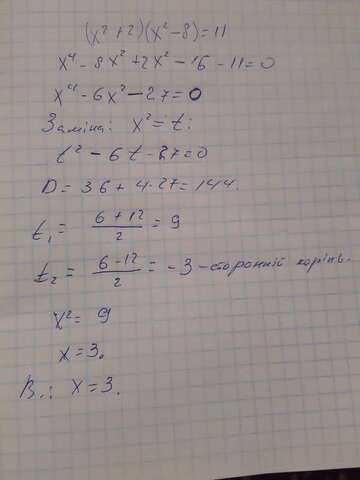 (x²+2)(x²-8)=11
x⁴-8x²+2x²-16-11=0
x⁴-6x²-27=0
Заміна: x²=t:
t²-6t-27=0
D=36+4·27=144.
t₁= (6+12)/2 = 9
t₂= (6-12)/2 = -3 - сторонній корінь.
x²= 9
x=3.
В.: x=3.